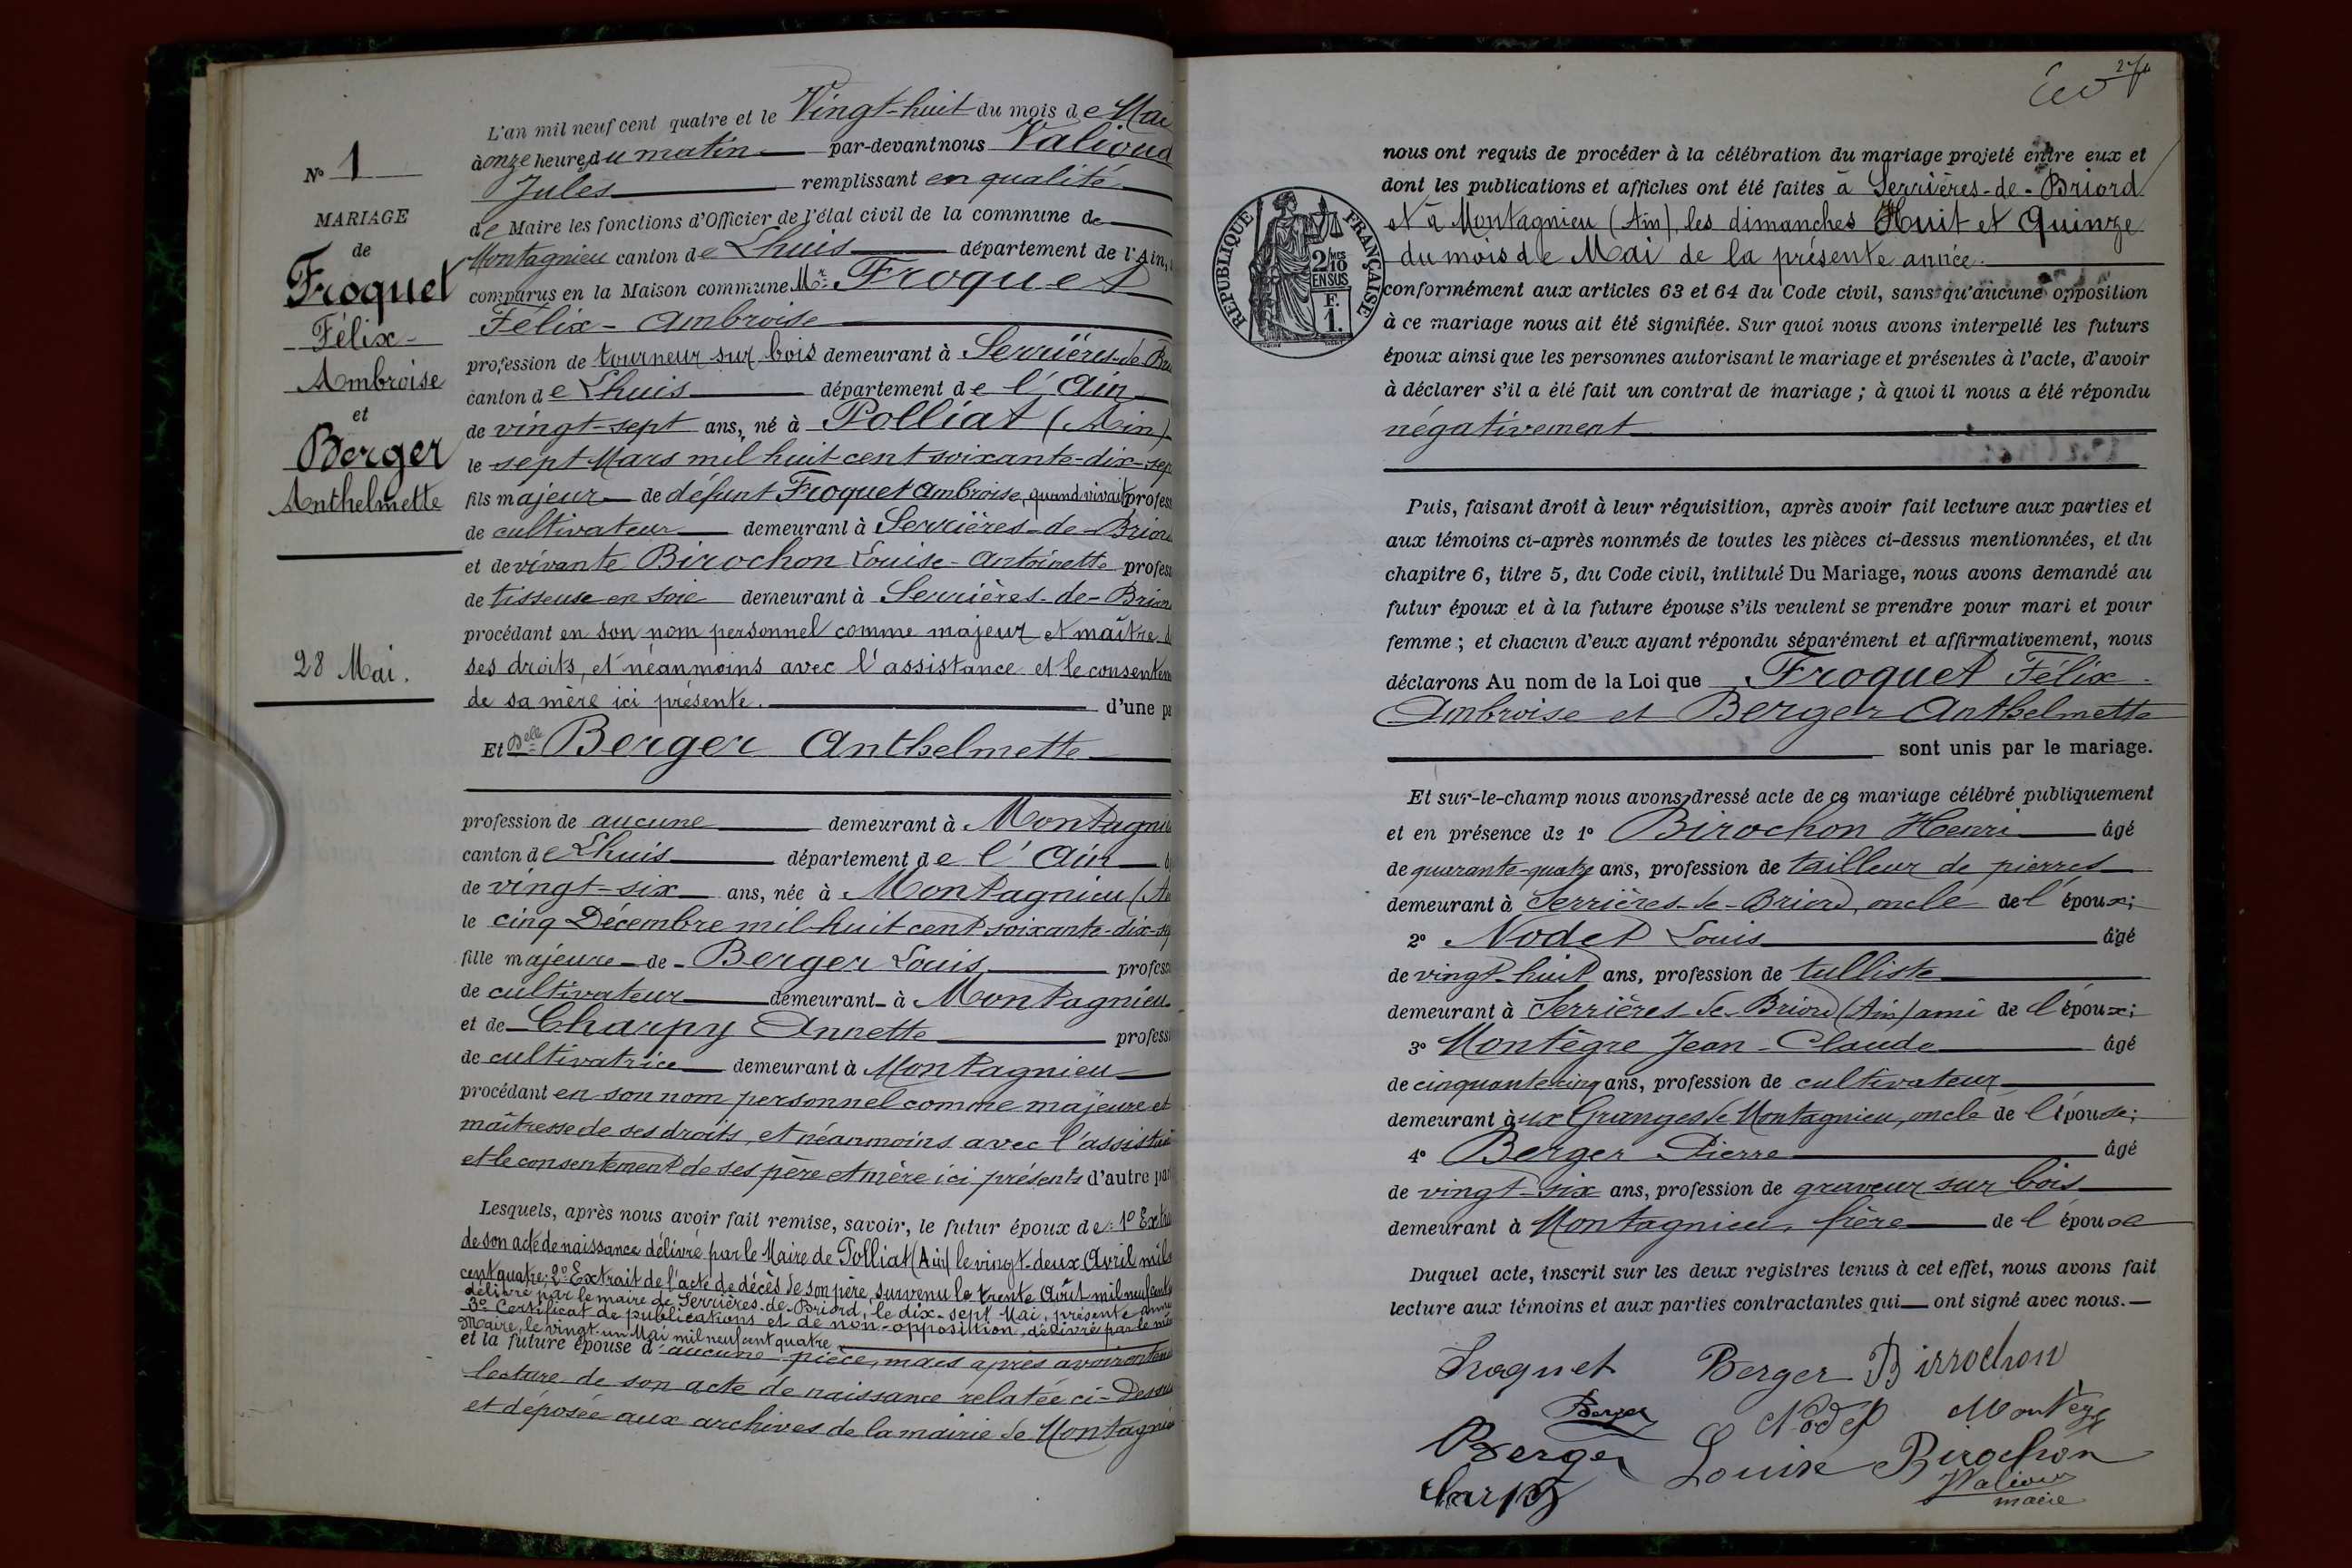 N° 1
MARIAGE
de
Froquet
Félix-
Ambroise
et
Berger
Anthelmette
28 Mai.
L'an mil neuf cent quatre et le Vingt-huit du mois de Mai
à onze heures du matin par-devant nous Valioud
Jules remplissant en qualité
de Maire les fonctions d'Officier de l'état civil de la commune de
Montagnieu canton de Lhuis département de l'Ain,
comparus en la Maison commune Mr Froquet
Félix-Ambroise
profession de tourneur sur bois demeurant à Serrières-de-Bri
canton de Lhuis département de l'Ain
de vingt-sept ans, né à Polliat (Ain)
le sept Mars mil huit cent soixante-dix-sep
fils majeur de défunt Froquet Ambroise, quand vivait profess
de cultivateur demeurant à Serrières-de-Briord
et de vivante Birochon Louise-Antoinette profess
de tisseuse en soie demeurant à Serrières-de-Briord
procédant en son nom personnel comme majeur et maître de
ses droits, et néanmoins avec l'assistance et le consentem
de sa mère ici présente. d'une pa
Et Delle Berger Anthelmette
profession de aucune demeurant à Montagnieu
canton de Lhuis département de l'Ain
de vingt-six ans, née à Montagnieu (A
le cinq Décembre mil huit cent soixante-dix-sep
fille majeure de Berger Louis profess
de cultivateur demeurant à Montagnieu
et de Charpy Annette professi
de cultivatrice demeurant à Montagnieu
procédant en son nom personnel comme majeure et
maîtresse de ses droits, et néanmoins avec l'assistan
et le consentement de ses père et mère ici présents d'autre par
Lesquels, après nous avoir fait remise, savoir, le futur époux de: 1° Extra
de son acte de naissance délivré par le Maire de Polliat (Ain) le vingt-deux Avril mil
cent quatre; 2° Extrait de l'acte de décès de son père, survenu le trente Août mil neuf cent
délivré par le maire de Serrières-de-Briord, le dix-sept Mai, présente anné
3° Certificat de publications et de non-opposition, délivré par le mê
Maire, le vingt-un Mai mil neuf cent quatre
et la future épouse d'aucune pièce, mais après avoir entend
lecture de son acte de naissance relatée ci-dessus
et déposée aux archives de la mairie de Montagnieu
RÉPUBLIQUE FRANÇAISE
2/10 EN SUS
F.
1.
nous ont requis de procéder à la célébration du mariage projeté entre eux et
dont les publications et affiches ont été faites à Serrières-de-Briord
et à Montagnieu (Ain), les dimanches Huit et Quinze
du mois de Mai de la présente année.
conformément aux articles 63 et 64 du Code civil, sans qu'aucune opposition
à ce mariage nous ait été signifiée. Sur quoi nous avons interpellé les futurs
époux ainsi que les personnes autorisant le mariage et présentes à l'acte, d'avoir
à déclarer s'il a été fait un contrat de mariage; à quoi il nous a été répondu
négativement
Puis, faisant droit à leur réquisition, après avoir fait lecture aux parties et
aux témoins ci-après nommés de toutes les pièces ci-dessus mentionnées, et du
chapitre 6, titre 5, du Code civil, intitulé Du Mariage, nous avons demandé au
futur époux et à la future épouse s'ils veulent se prendre pour mari et pour
femme; et chacun d'eux ayant répondu séparément et affirmativement, nous
déclarons Au nom de la Loi que Froquet Félix-
Ambroise et Berger Anthelmette
sont unis par le mariage.
Et sur-le-champ nous avons dressé acte de ce mariage célébré publiquement
et en présence de 1° Birochon Henri âgé
de quarante-quatre ans, profession de tailleur de pierres
demeurant à Serrières-de-Briord, oncle de l'époux;
2° Nodet Louis âgé
de vingt-huit ans, profession de tulliste
demeurant à Serrières-de-Briord (Ain) ami de l'époux;
3° Montègre Jean-Claude âgé
de cinquante-cinq ans, profession de cultivateur
demeurant aux Granges de Montagnieu, oncle de l'épouse;
4° Berger Pierre âgé
de vingt-six ans, profession de graveur sur bois
demeurant à Montagnieu, frère de l'épouse
Duquel acte, inscrit sur les deux registres tenus à cet effet, nous avons fait
lecture aux témoins et aux parties contractantes qui ont signé avec nous.
Froquet Berger Birrochon
Berger Nodet Montègre
Berger Louise Birochon
Charpy Valioud
maire